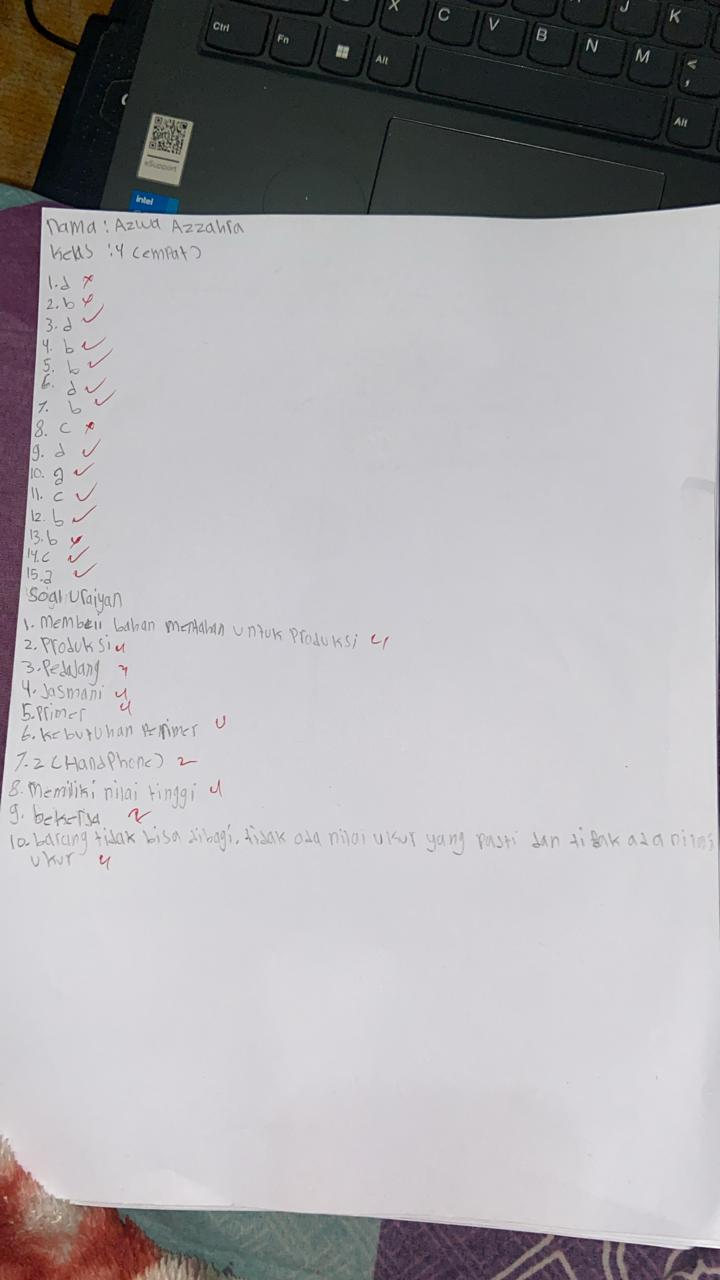 X C V B N M J K
Ctrl Fn Alt < , Alt
eSupport
intel
Nama : Azwa Azzahra
Kelas : 4 (empat)
1. d ×
2. b ×
3. d ✓
4. b ✓
5. b ✓
6. d ✓
7. b ✓
8. c ×
9. d ✓
10. a ✓
11. c ✓
12. b ✓
13. b ×
14. c ✓
15. a ✓
Soal Uraiyan
1. Membeli bahan mentahan untuk Produksi 4
2. Produksi 4
3. Pedajang 4
4. Jasmani 4
5. Primer 4
6. Kebutuhan Primer
7. 2 (HandPhone) 2
8. Memiliki nilai tinggi 4
9. bekerja 2
10. barang tidak bisa dibagi, tidak ada nilai ukur yang Pasti dan tidak ada nilai
ukur 4